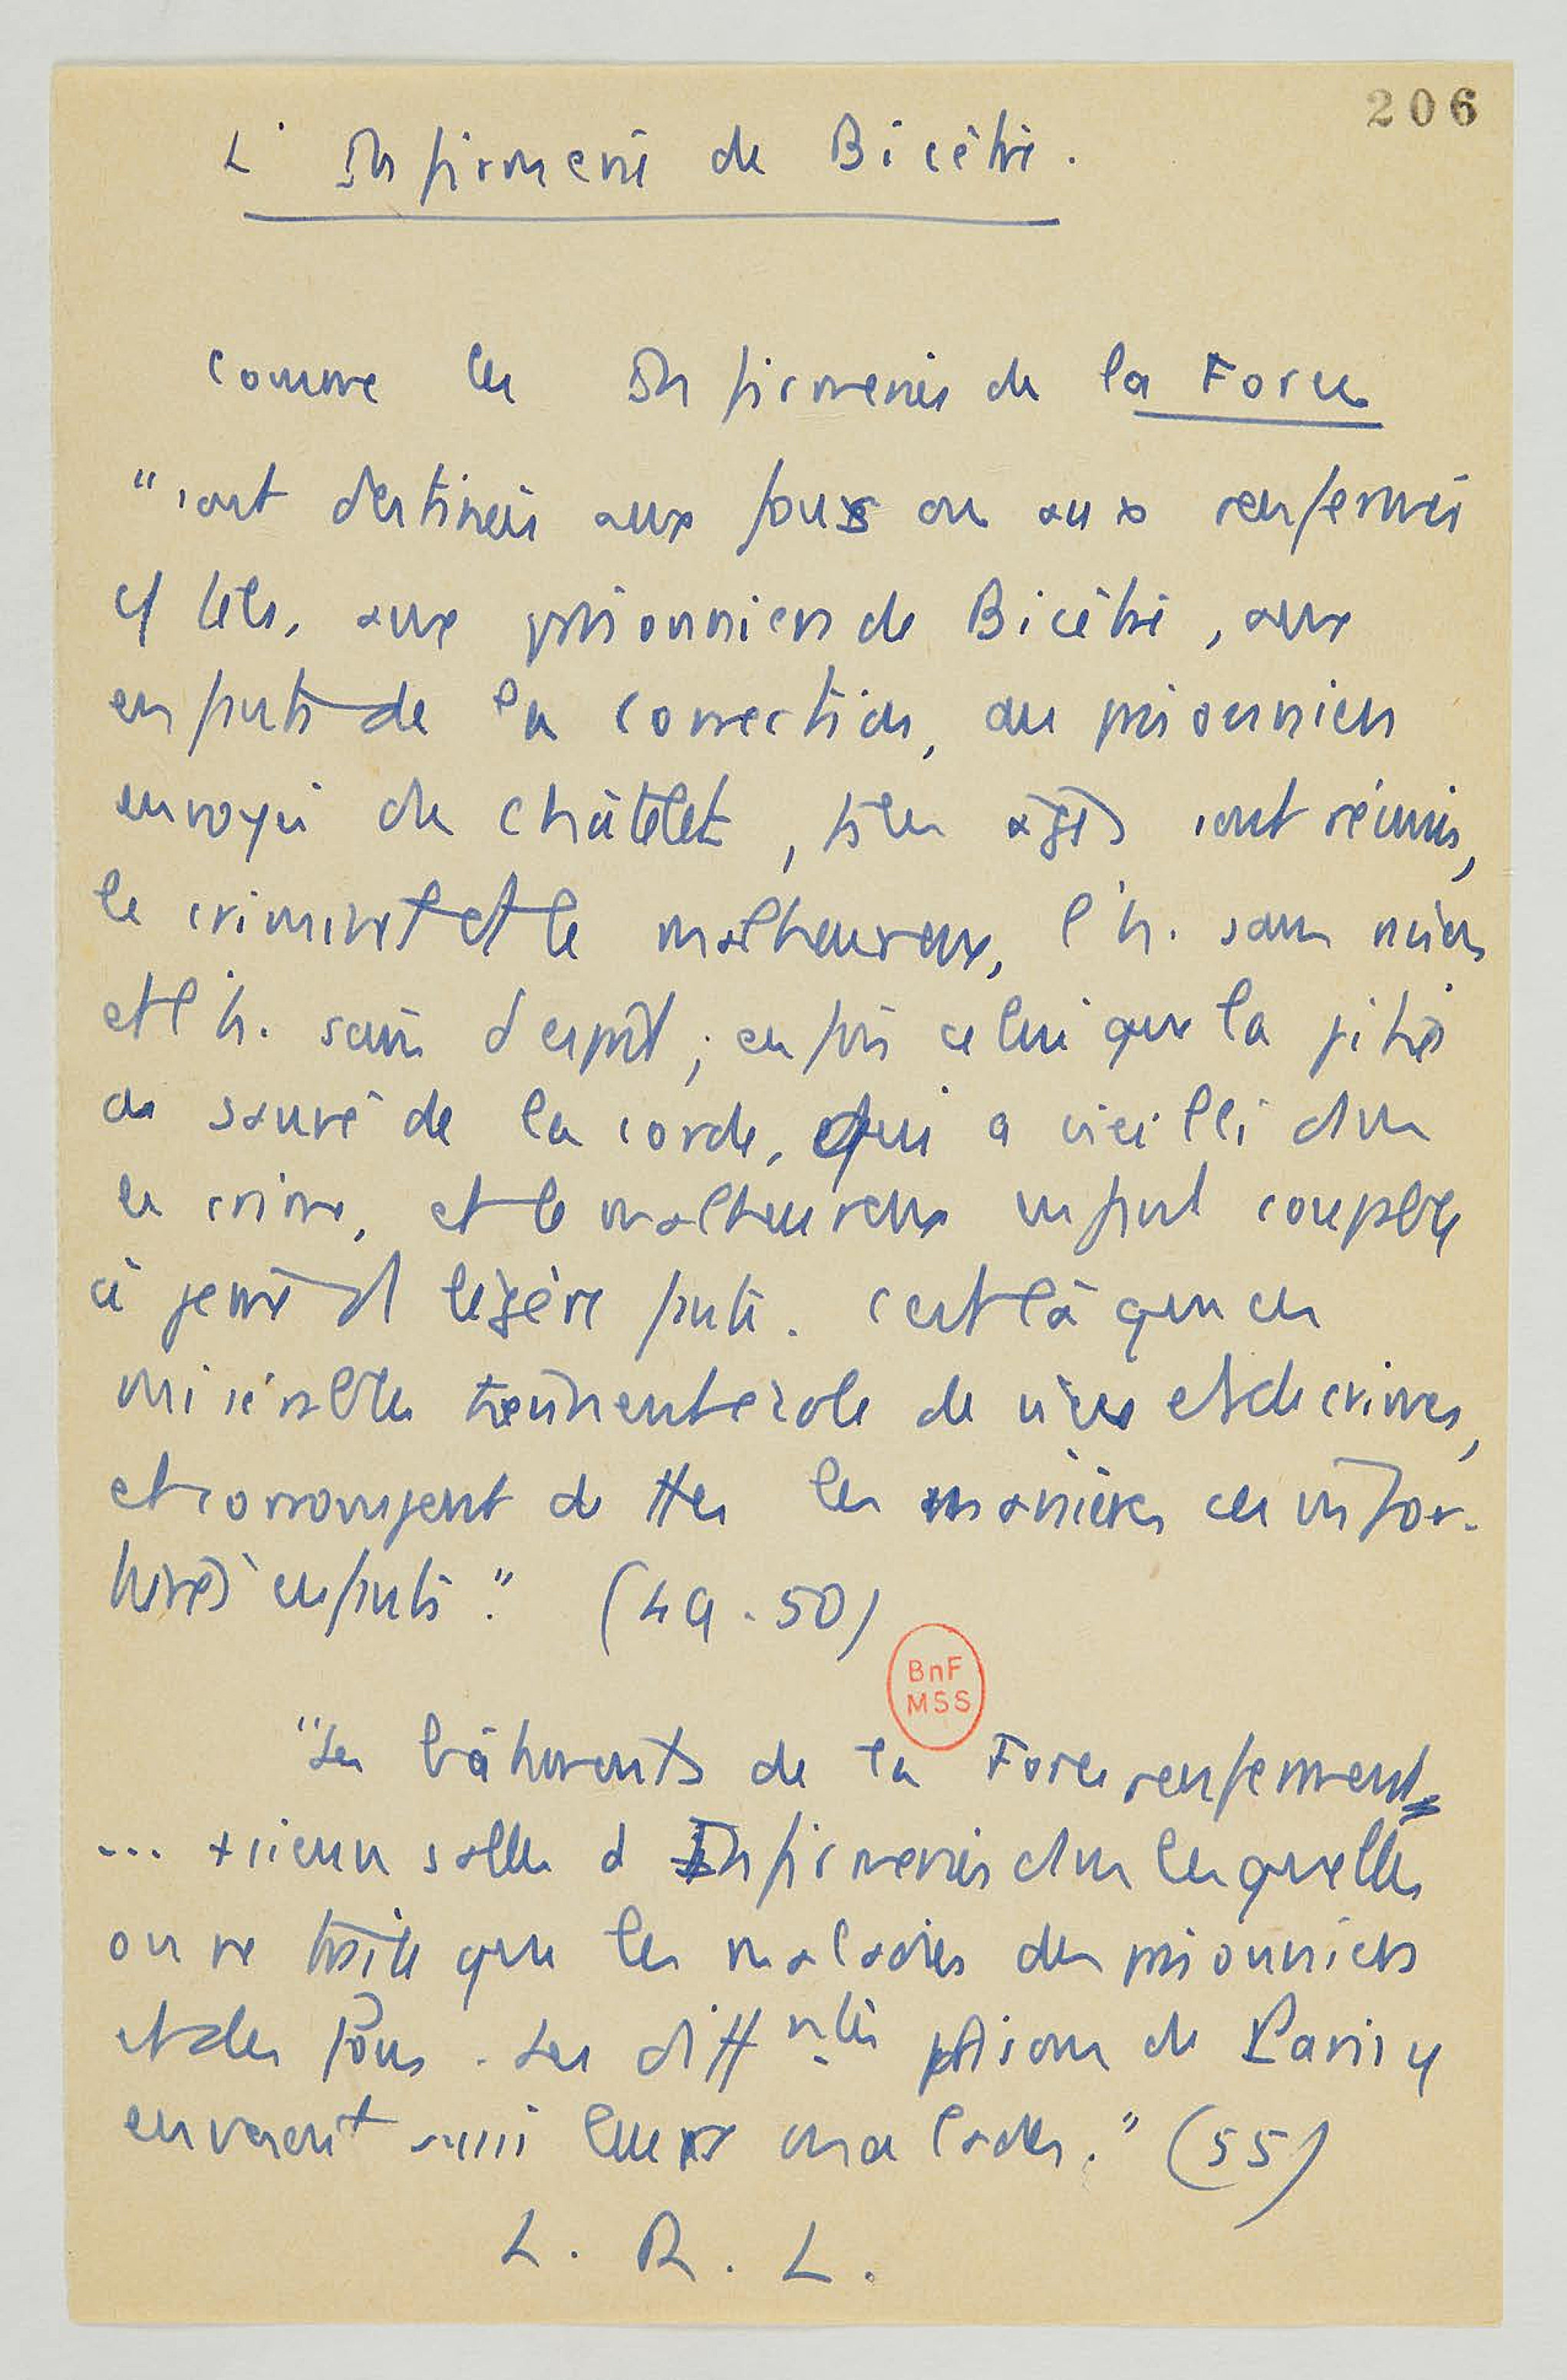 206
L'Infirmerie de Bicêtre.
Comme les Infirmeries de la Force
"sont destinées aux fous ou aux renfermés
cf tels, aux prisonniers de Bicêtre, aux
enfants de la correction, aux prisonniers
envoyés du Châtelet, ts les âges sont réunis,
le criminel et le malheureux, l'h. sans mœurs
et l'h. sain d'esprit ; enfin celui que la pitié
a sauvé de la corde, qui a vieilli dans
le crime, et le malheureux enfant coupable
à peine d'1 légère faute. C'est là que ces
misérables tiennent école de vice et de crimes,
et corrompent de ttes les manières ces infor-
tunés enfants." (49-50)
BnF
MSS
"Les bâtiments de la Force renferment
... +sieurs salles d'Infirmeries dans lesquelles
on ne traite que les maladies des prisonniers
et des fous. Les différentes prisons de Paris y
envoient aussi leurs malades." (55)
L. R. L.